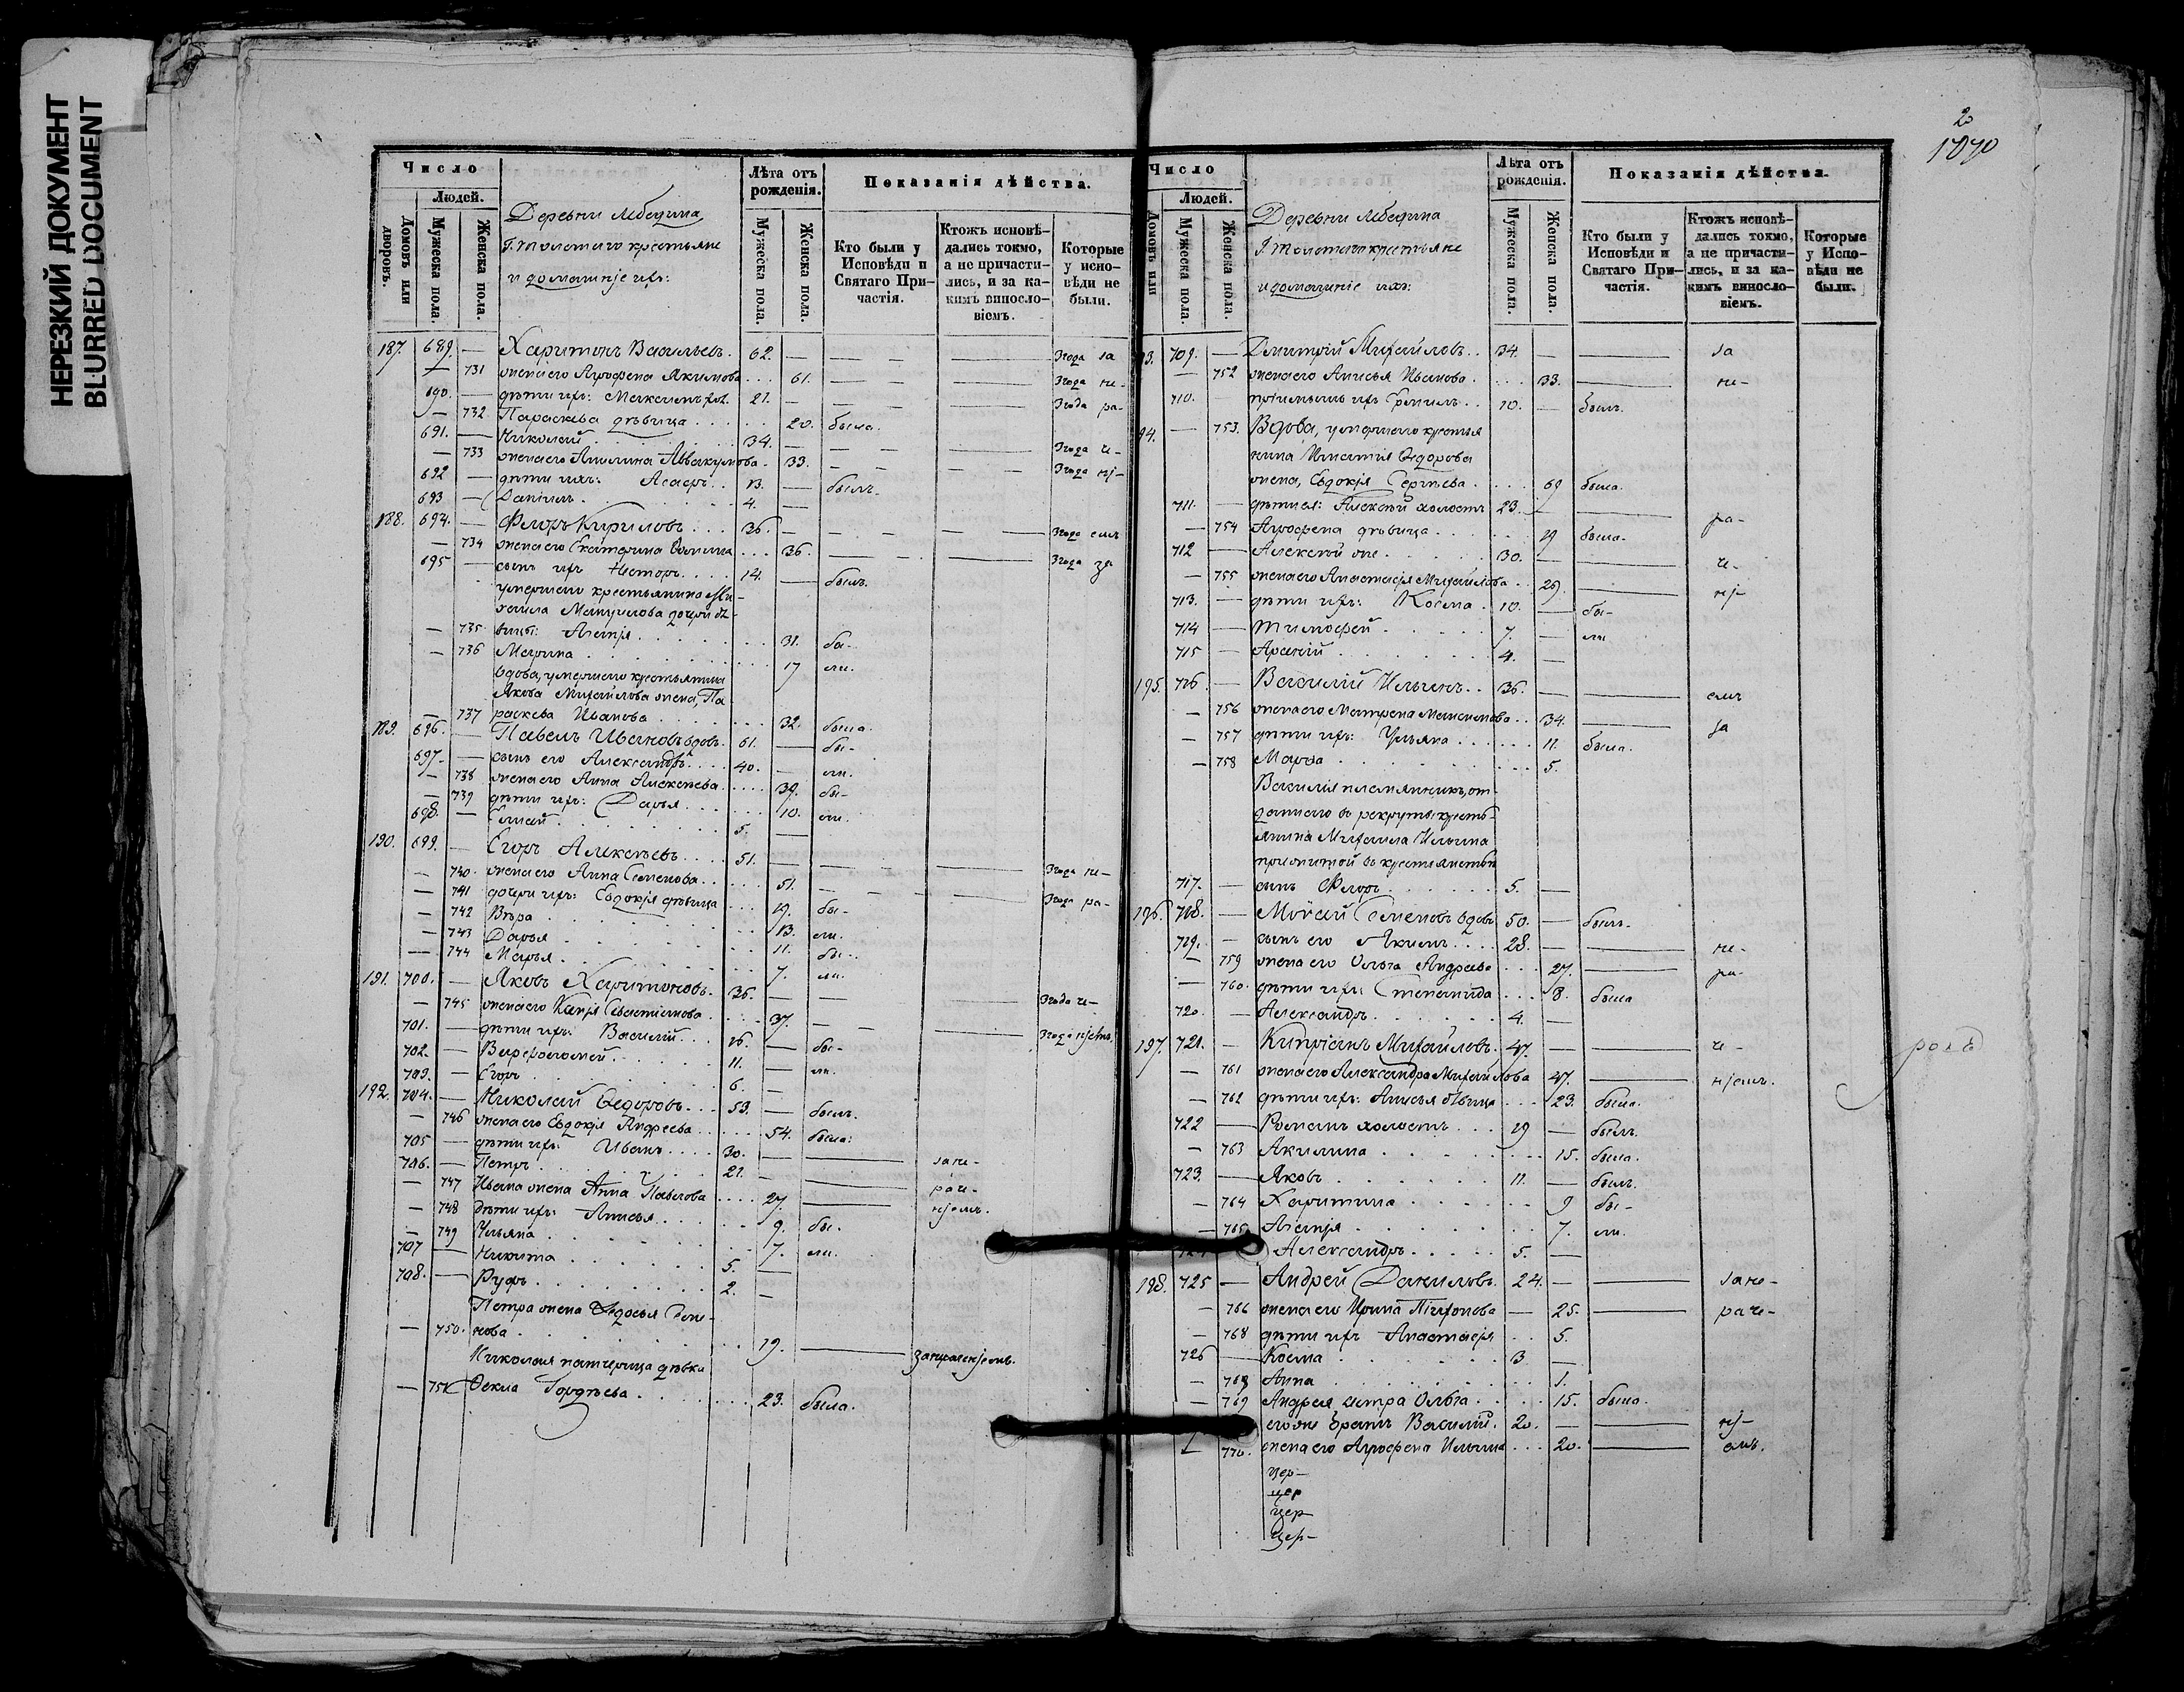 НЕРЕЗКИЙ ДОКУМЕНТ
BLURRED DOCUMENT
Число
Людей.
Домовъ или дворовъ.
Мужеска пола.
Женска пола.
Деревни Лебедина
Г. Толстаго крестьяне
и домашніе ихъ:
Лѣта отъ рожденія.
Мужеска пола.
Женска пола.
Показанія дѣйства.
Кто были у Исповѣди и Святаго Причастія.
Ктожъ исповѣдались токмо, а не причастились, и за какимъ винословіемъ.
Которые у исповѣди не были.
187. 689. — Харитонъ Васильевъ. 62. — 3 года за
— 731 жена его Агрофена Якимова 61. — 3 года не-
690. — дѣти ихъ: Максимъ 21. — 3 года ра-
— 732 Параскева дѣвица 20. была.
691. — Николай 34. — 3 года че-
— 733 жена его Акилина Аввакумова 33. — 3 года ніе-
692 — дѣти ихъ: 13. — былъ.
693 — Даніилъ 4. —
188. 694. — Флоръ Кириловъ 36. — 3 года емъ
— 734 жена его Екатерина 36. — 3 года за
695 — сынъ ихъ Несторъ 14. — былъ.
умершаго крестьянина Ми-
хаила дочери дѣ-
— 735 вицы: Агапія 31. бы-
— 736 Марина 17 ли.
вдова, умершаго крестьянина
Якова Михайлова жена, Па
— 737 раскева Иванова 32. была.
189. 696. — Павелъ Ивановъ вдовъ. 61. — бы-
697. — сынъ его Александръ 40. — ли.
— 738 жена его Анна Алексѣева 39. бы-
— 739 дѣти ихъ: Дарья 10. ли.
698. — 5. —
190. 699. — Егоръ Алексѣевъ 51. — 3 года не-
— 740 жена его Анна Семенова 51. — 3 года ра-
— 741 дочери ихъ: Евдокія дѣвица 19. бы-
— 742 Вѣра 13. ли.
— 743 Дарья 11. бы-
— 744 Марья 7. ли.
191. 700. — Яковъ Харитоновъ. 36. — 3 года че-
— 745 жена его Ксенія Севастіанова 37. — 3 года ніемъ.
701. — дѣти ихъ: Василій 16. — бы-
702. — Варфоломей 11. — ли.
703. — Егоръ 6. —
192. 704. — Николай Ѳедоровъ 53. — былъ.
— 746 жена его Евдокія Андреева 54. была.
705 — дѣти ихъ: Иванъ 30. — за не-
706. — Петръ 21. — раче-
— 747 Ивана жена Анна Павлова 27. ніемъ.
— 748 дѣти ихъ: Анисья 9. бы-
— 749 Ульяна 7. ли.
707 — Никита 5. —
708. — Руфъ 2. —
Петра жена Ѳедосья
— 750. нова 19. за нераченіемъ.
Николая падчерица дѣвка
— 751 Ѳекла Гордѣева 23. была.
20
1070
Число
Людей.
Домовъ или
Мужеска пола.
Женска пола.
Деревни Лебедина
Г. Толстаго крестьяне
и домашніе ихъ:
Лѣта отъ рожденія.
Мужеска пола.
Женска пола.
Показанія дѣйства.
Кто были у Исповѣди и Святаго Причастія.
Ктожъ исповѣдались токмо, а не причастились, и за какимъ винословіемъ.
Которые у Исповѣди не были.
93. 709. — Дмитрій Михайловъ 34. — за
— 752 жена его Анисья Иванова 33. не-
710. — 10. — былъ.
94. — 753. Вдова, умершаго крестья
нина Игнатія Ѳедорова
жена, Евдокія Сергѣева 69 была.
711. — дѣти ея: Алексѣй холостъ 23. — ра-
— 754 Агрофена дѣвица 19 была.
712 — Алексѣй же 30. — че-
— 755 жена его Анастасія Михайлова 29. ніе-
713. — дѣти ихъ: Косма 10. — бы-
714 — Тимофей 7. — ли
715 — 4. —
195. 716. — Василій Ильинъ 36. — емъ
— 756 жена его Матрена Максимова 34. за
— 757 дѣти ихъ: Ульяна 11. была.
— 758 Марѳа 5.
Василія племянникъ, от-
даннаго въ рекруты кресть-
янина Михаила Ильина
прижитой въ крестьянствѣ
717. — сынъ Флоръ 5. —
196. 718. — Мойсей Семеновъ вдовъ 50. — былъ.
719. — сынъ его Якимъ 28. — не-
— 759 жена его Ольга Андреева 27. ра-
— 760. дѣти ихъ: Степанида 8. была
720. — Александръ 4. —
197. 721. — Кипріанъ Михайловъ. 47. — че-
— 761 жена его Александра Михайлова 47. ніемъ.
— 762 дѣти ихъ: Анисья дѣвица 23. была.
722 — Романъ холостъ 19 — былъ.
— 763 Акилина 15. была.
723. — Яковъ 11. — былъ.
— 764 Харитина 9 бы-
— 765 Агапія 7. ли.
Александръ 5. —
198. 725 — Андрей Даниловъ 24. — за не-
— 766 жена его Ирина — 25. раче-
— 768 дѣти ихъ Анастасія 5.
726 — Косма 3 —
— Анна 1.
— 769 Андрея сестра Ольга 15. была.
его же братъ Василій 20. — ні-
— 770. жена его Агрофена Ильина 20. емъ.
цер-
цер
цер
цер-